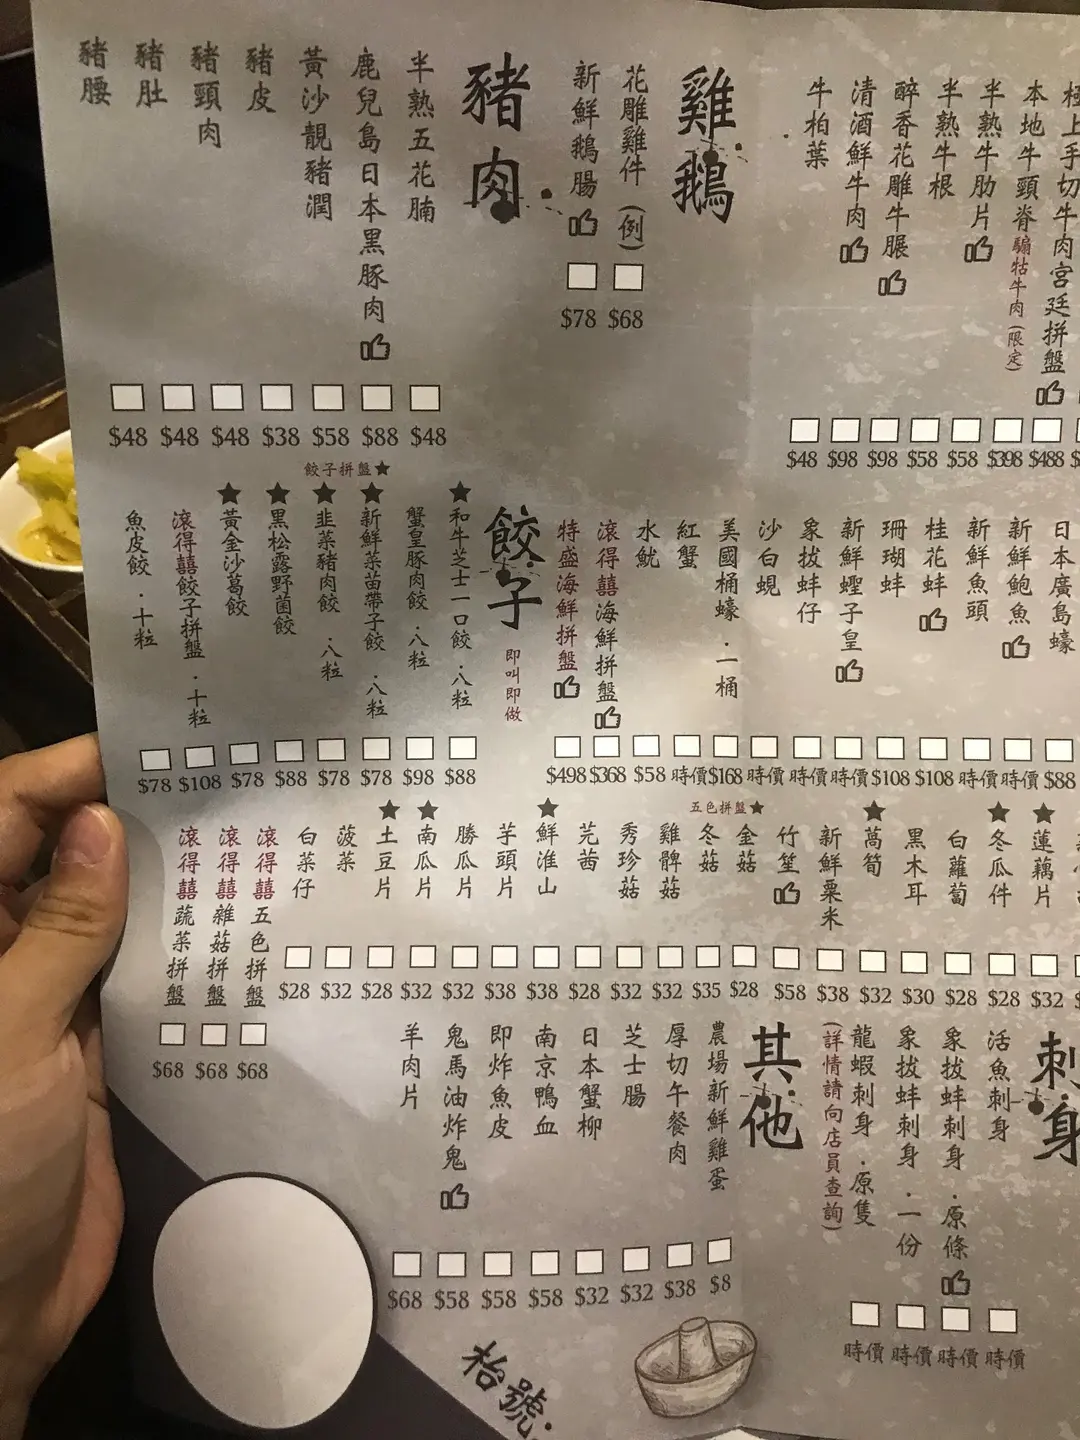 本地牛頸脊 騸牯牛肉(限定) $398
半熟牛肋片 $58
半熟牛根 $58
醉香花雕牛𦟌 $98
清酒鮮牛肉 $98
牛柏葉 $48
雞鵝
花雕雞件(例) $68
新鮮鵝腸 $78
豬肉
半熟五花腩 $48
鹿兒島日本黑豚肉 $88
黃沙靚豬潤 $58
豬皮 $38
豬頸肉 $48
豬肚 $48
豬腰 $48
日本廣島蠔 $88
新鮮鮑魚 時價
新鮮魚頭 時價
桂花蚌 $108
珊瑚蚌 $108
新鮮蟶子皇 時價
象拔蚌仔 時價
沙白蜆 時價
美國桶蠔．一桶 $168
紅蟹 時價
水魷 $58
滾得囍海鮮拼盤 $368
特盛海鮮拼盤 $498
餃子 即叫即做
★餃子拼盤
★和牛芝士一口餃．八粒 $88
蟹皇豚肉餃．八粒 $98
★新鮮菜苗帶子餃．八粒 $78
★韭菜豬肉餃．八粒 $78
★黑松露野菌餃 $88
★黃金沙葛餃 $78
滾得囍餃子拼盤．十粒 $108
魚皮餃．十粒 $78
五色拼盤★
★蓮藕片 $32
★冬瓜件 $28
白蘿蔔 $28
黑木耳 $30
★萵筍 $32
新鮮粟米 $38
竹笙 $58
金菇 $28
冬菇 $35
雞髀菇 $32
秀珍菇 $32
芫茜 $28
★鮮淮山 $38
芋頭片 $38
勝瓜片 $32
★南瓜片 $32
★土豆片 $28
菠菜 $32
白菜仔 $28
滾得囍五色拼盤 $68
滾得囍雜菇拼盤 $68
滾得囍蔬菜拼盤 $68
刺身
活魚刺身 時價
象拔蚌刺身．原條 時價
象拔蚌刺身．一份 時價
龍蝦刺身．原隻 時價
(詳情請向店員查詢)
其他
農場新鮮雞蛋 $8
厚切午餐肉 $38
芝士腸 $32
日本蟹柳 $32
南京鴨血 $58
即炸魚皮 $58
鬼馬油炸鬼 $58
羊肉片 $68
枱號：